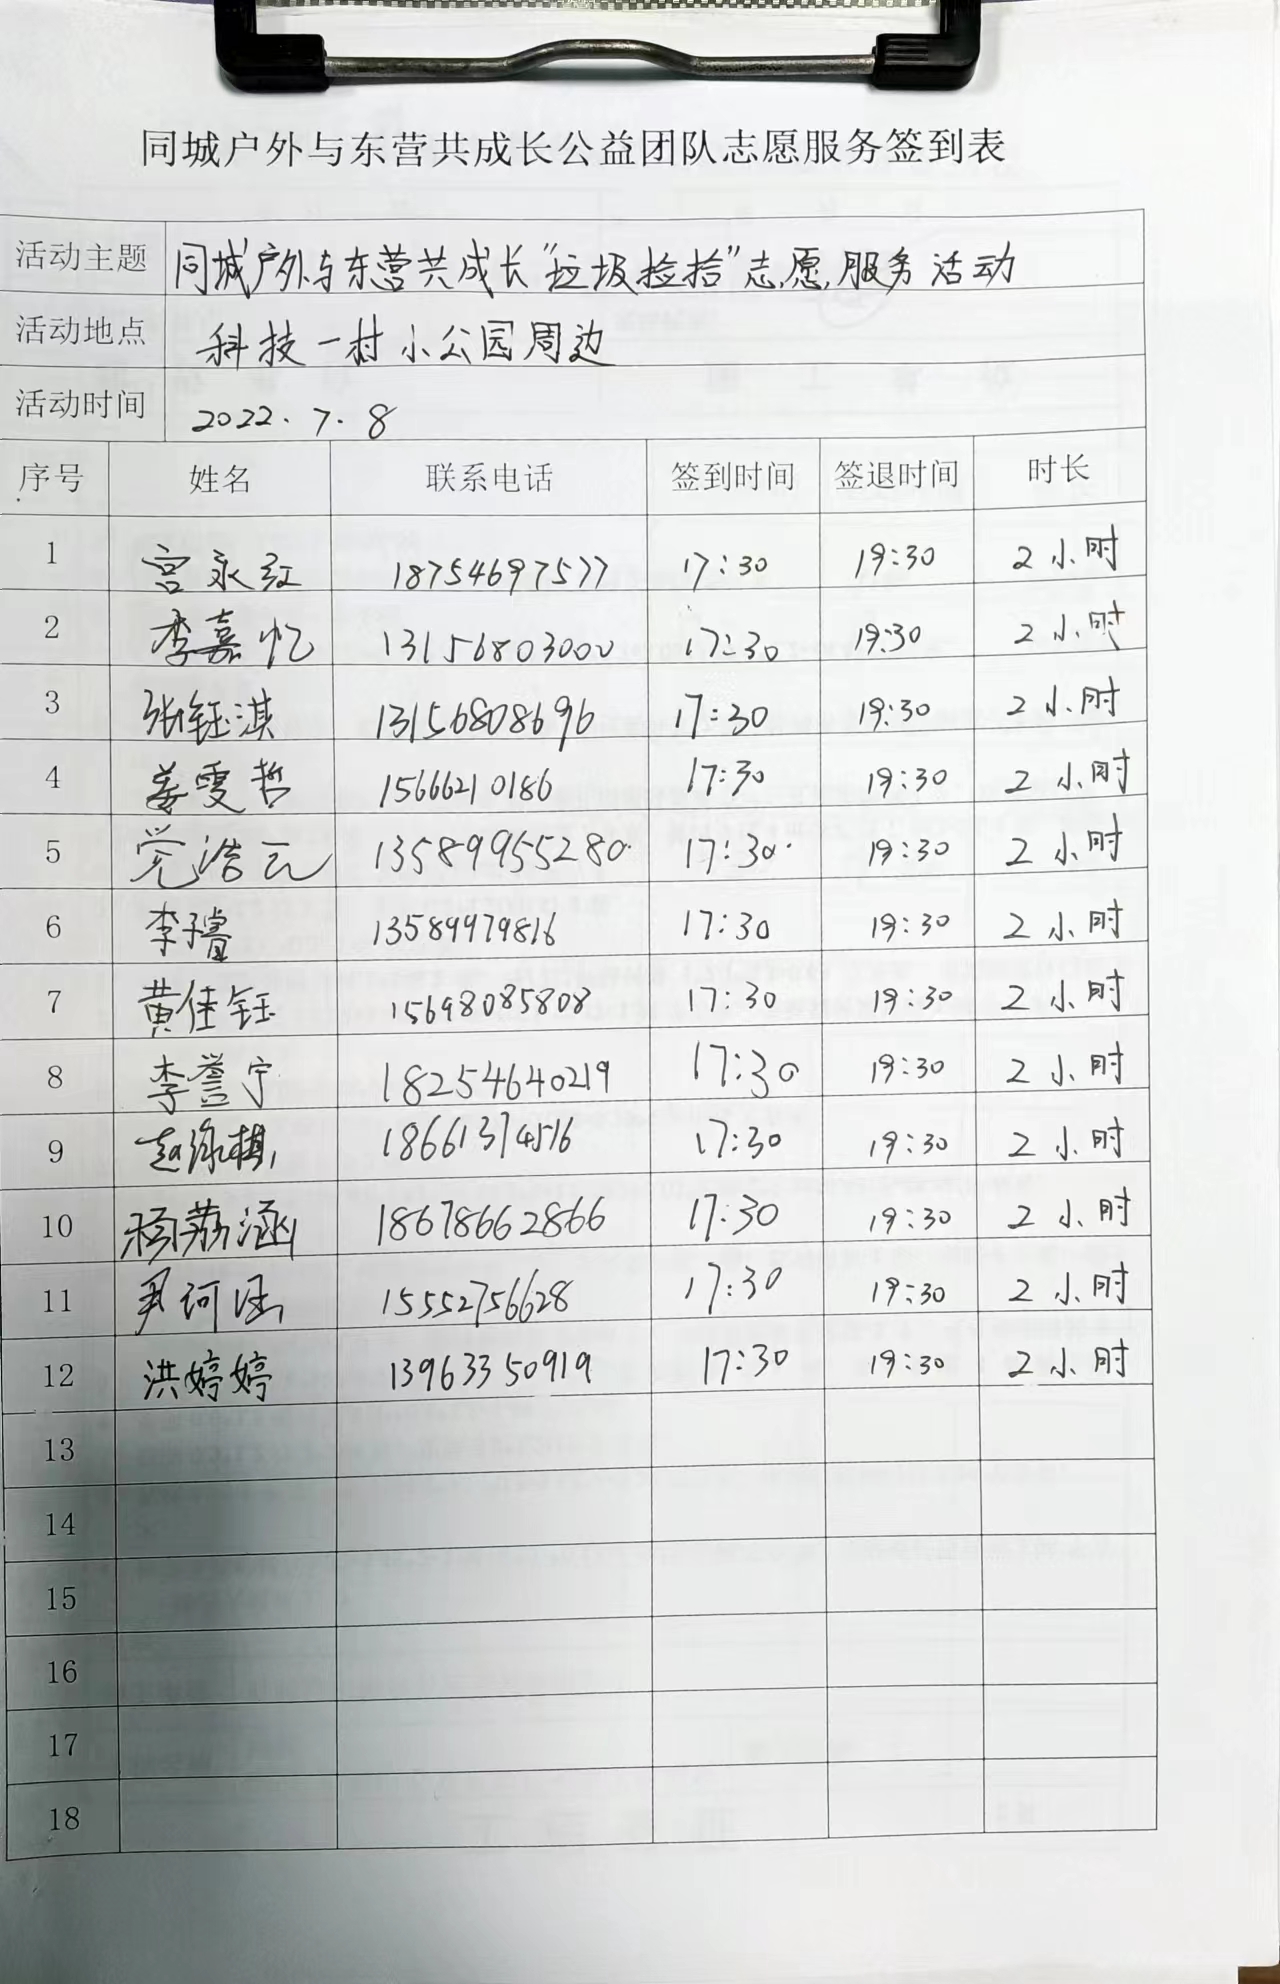 同城户外与东营共成长公益团队志愿服务签到表
活动主题 同城户外与东营共成长“垃圾捡拾”志愿服务活动
活动地点 科技一村小公园周边
活动时间 2022.7.8
序号 姓名 联系电话 签到时间 签退时间 时长
1 宫永红 18754697577 17:30 19:30 2小时
2 李嘉忆 13156803000 17:30 19:30 2小时
3 张钰淇 13156808696 17:30 19:30 2小时
4 姜雯哲 15666210186 17:30 19:30 2小时
5 党浩元 13589955280 17:30 19:30 2小时
6 李睿 13589979816 17:30 19:30 2小时
7 黄佳钰 15698085808 17:30 19:30 2小时
8 李誉宁 18254640219 17:30 19:30 2小时
9 赵泳棋 18661374516 17:30 19:30 2小时
10 杨荔涵 18678662866 17:30 19:30 2小时
11 尹珂 15552756628 17:30 19:30 2小时
12 洪婷婷 13963350919 17:30 19:30 2小时
13
14
15
16
17
18